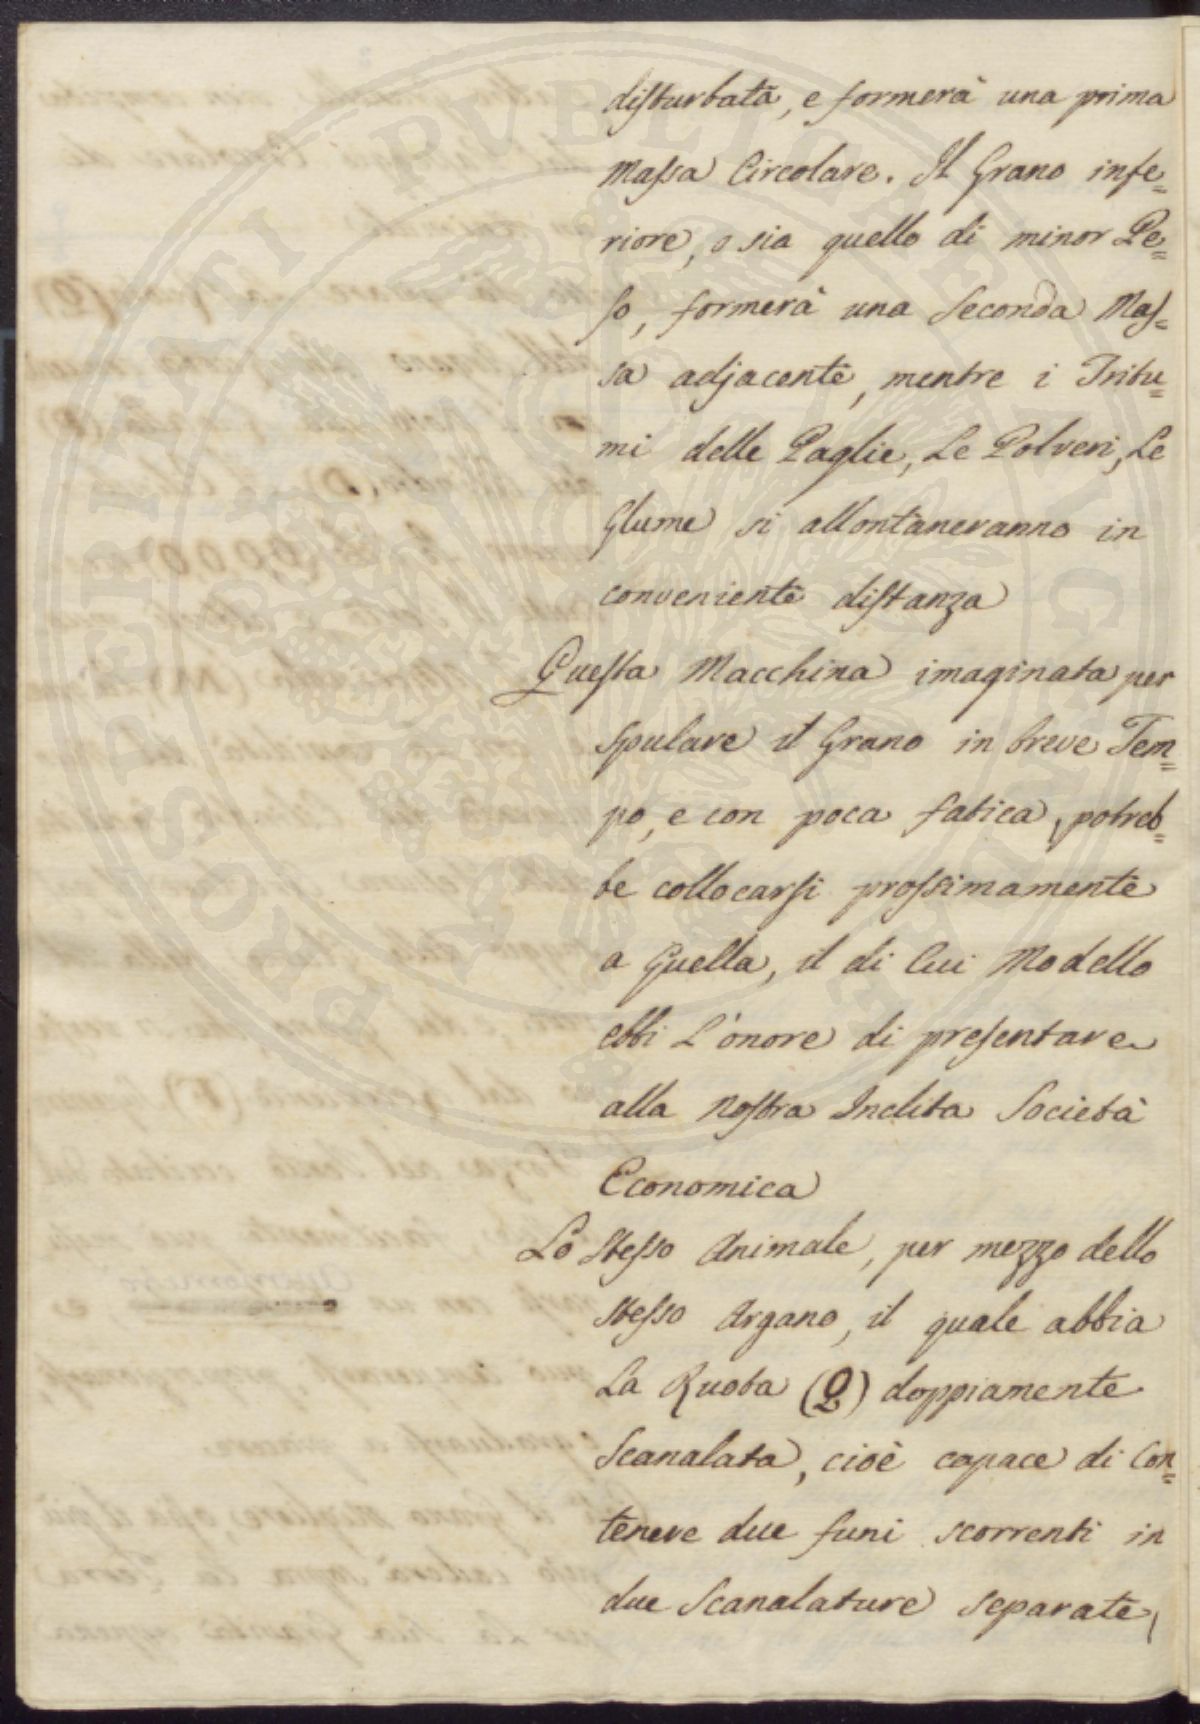 disturbata, e formerà una prima
Massa Circolare. Il Grano infe=
riore, o sia quello di minor Pe=
so, formerà una Seconda Mas=
sa adjacente, mentre i Tritu=
mi delle Paglie, Le Polveri, Le
Glume si allontaneranno in
conveniente distanza
Questa Macchina imaginata per
Spulare il Grano in breve Tem=
po, e con poca fatica, potreb=
be collocarsi prossimamente
a Quella, il di Cui Modello
ebbi L'onore di presentare
alla Nostra Inclita Società
Economica
Lo Stesso Animale, per mezzo dello
Stesso Argano, il quale abbia
La Ruota (Q) doppiamente
Scanalata, cioè capace di Con=
tenere due funi scorrenti in
due Scanalature separate,
PROSPERITATI PVBLICAE